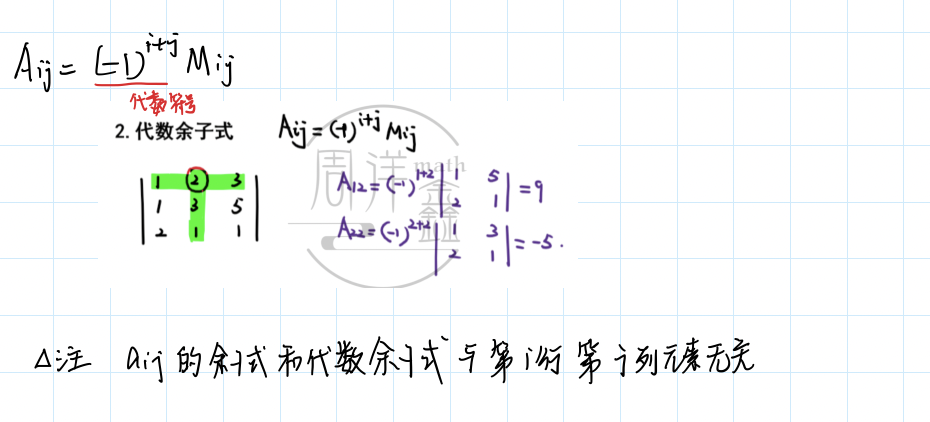 Aij = (-1)^i+j Mij
代数符号
2.代数余子式 Aij = (-1)^i+j Mij
1 2 3
1 3 5
2 1 1
A12 = (-1)^1+2 | 1 5
2 1 | = 9
A22 = (-1)^2+2 | 1 3
2 1 | = -5.
周洋鑫 math
△注 aij 的余子式和代数余子式与第i行第j列元素无关